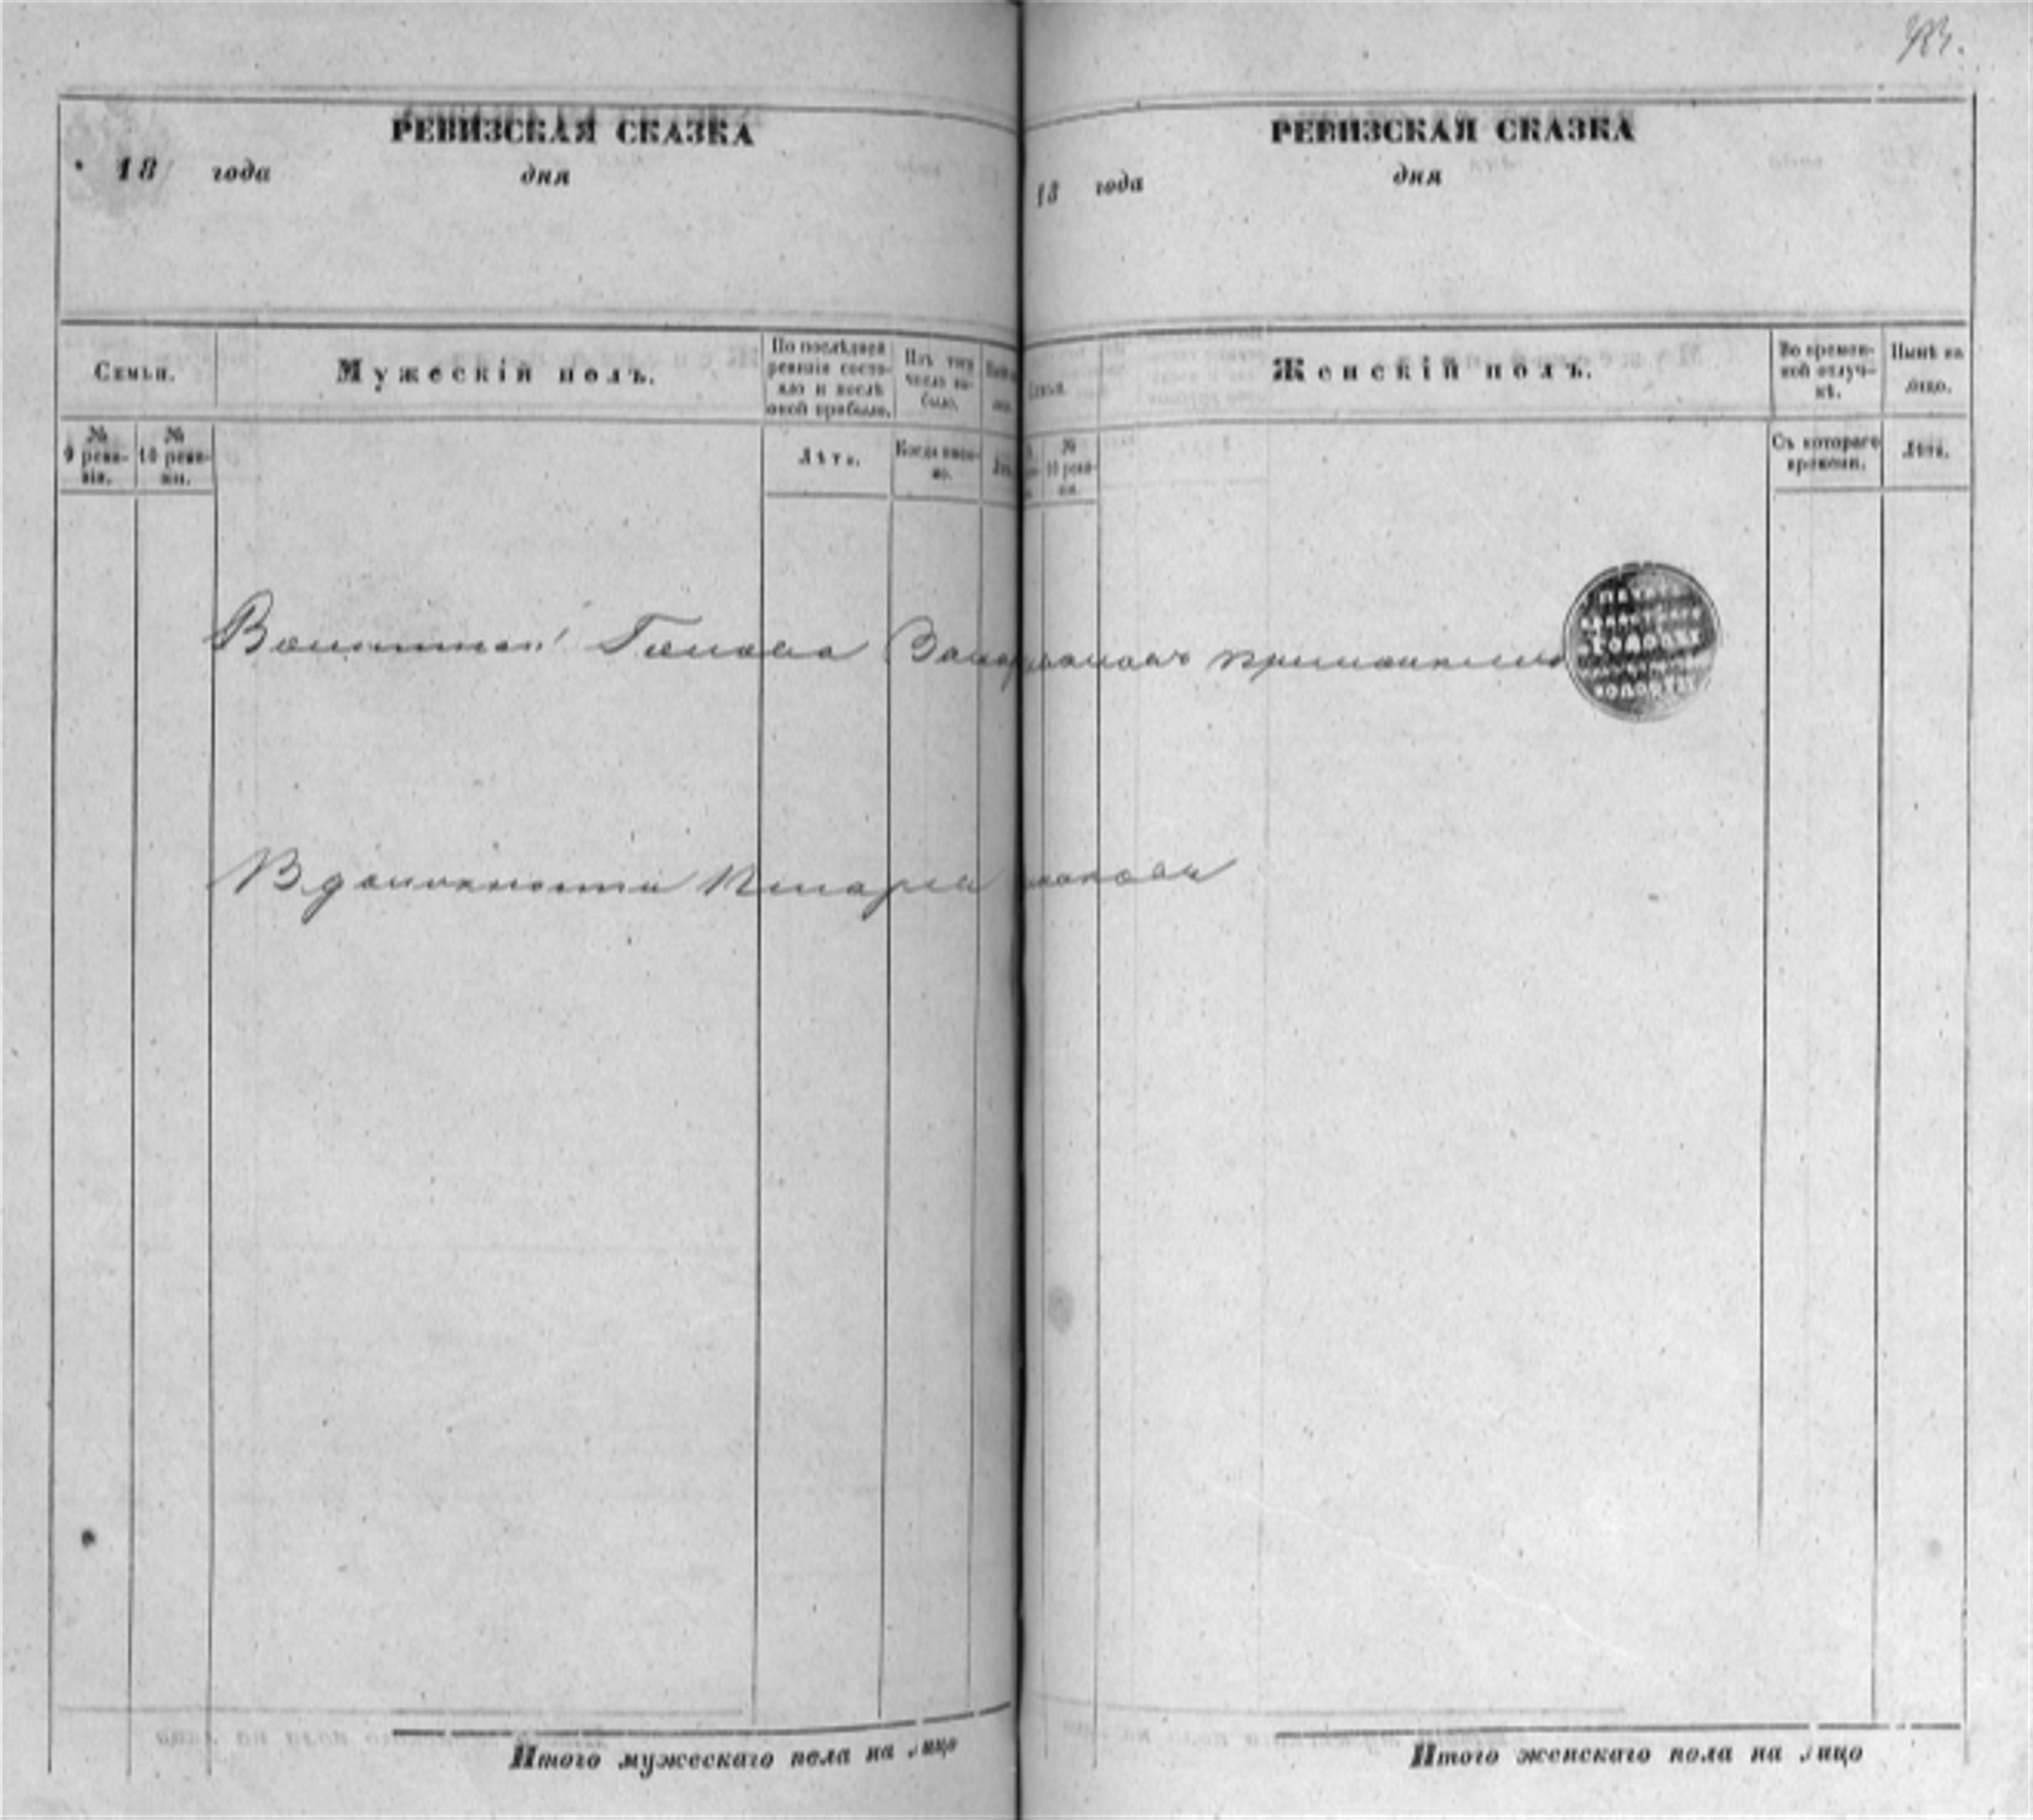 РЕВИЗСКАЯ СКАЗКА
18 года дня
Семьи.
Мужескій полъ.
По послѣдней ревизіи состояло и послѣ оной прибыло.
Изъ того числа выбыло.
№ 9 ревизіи.
№ 10 ревизіи.
Лѣта.
Когда именно.
Волостной Голова
В должности Писаря
Итого мужескаго пола на лицо
РЕВИЗСКАЯ СКАЗКА
18 года дня
Женскій полъ.
Во временной отлучкѣ.
Нынѣ на лицо.
№ 10 ревизіи.
Съ котораго времени.
Лѣта.
Итого женскаго пола на лицо